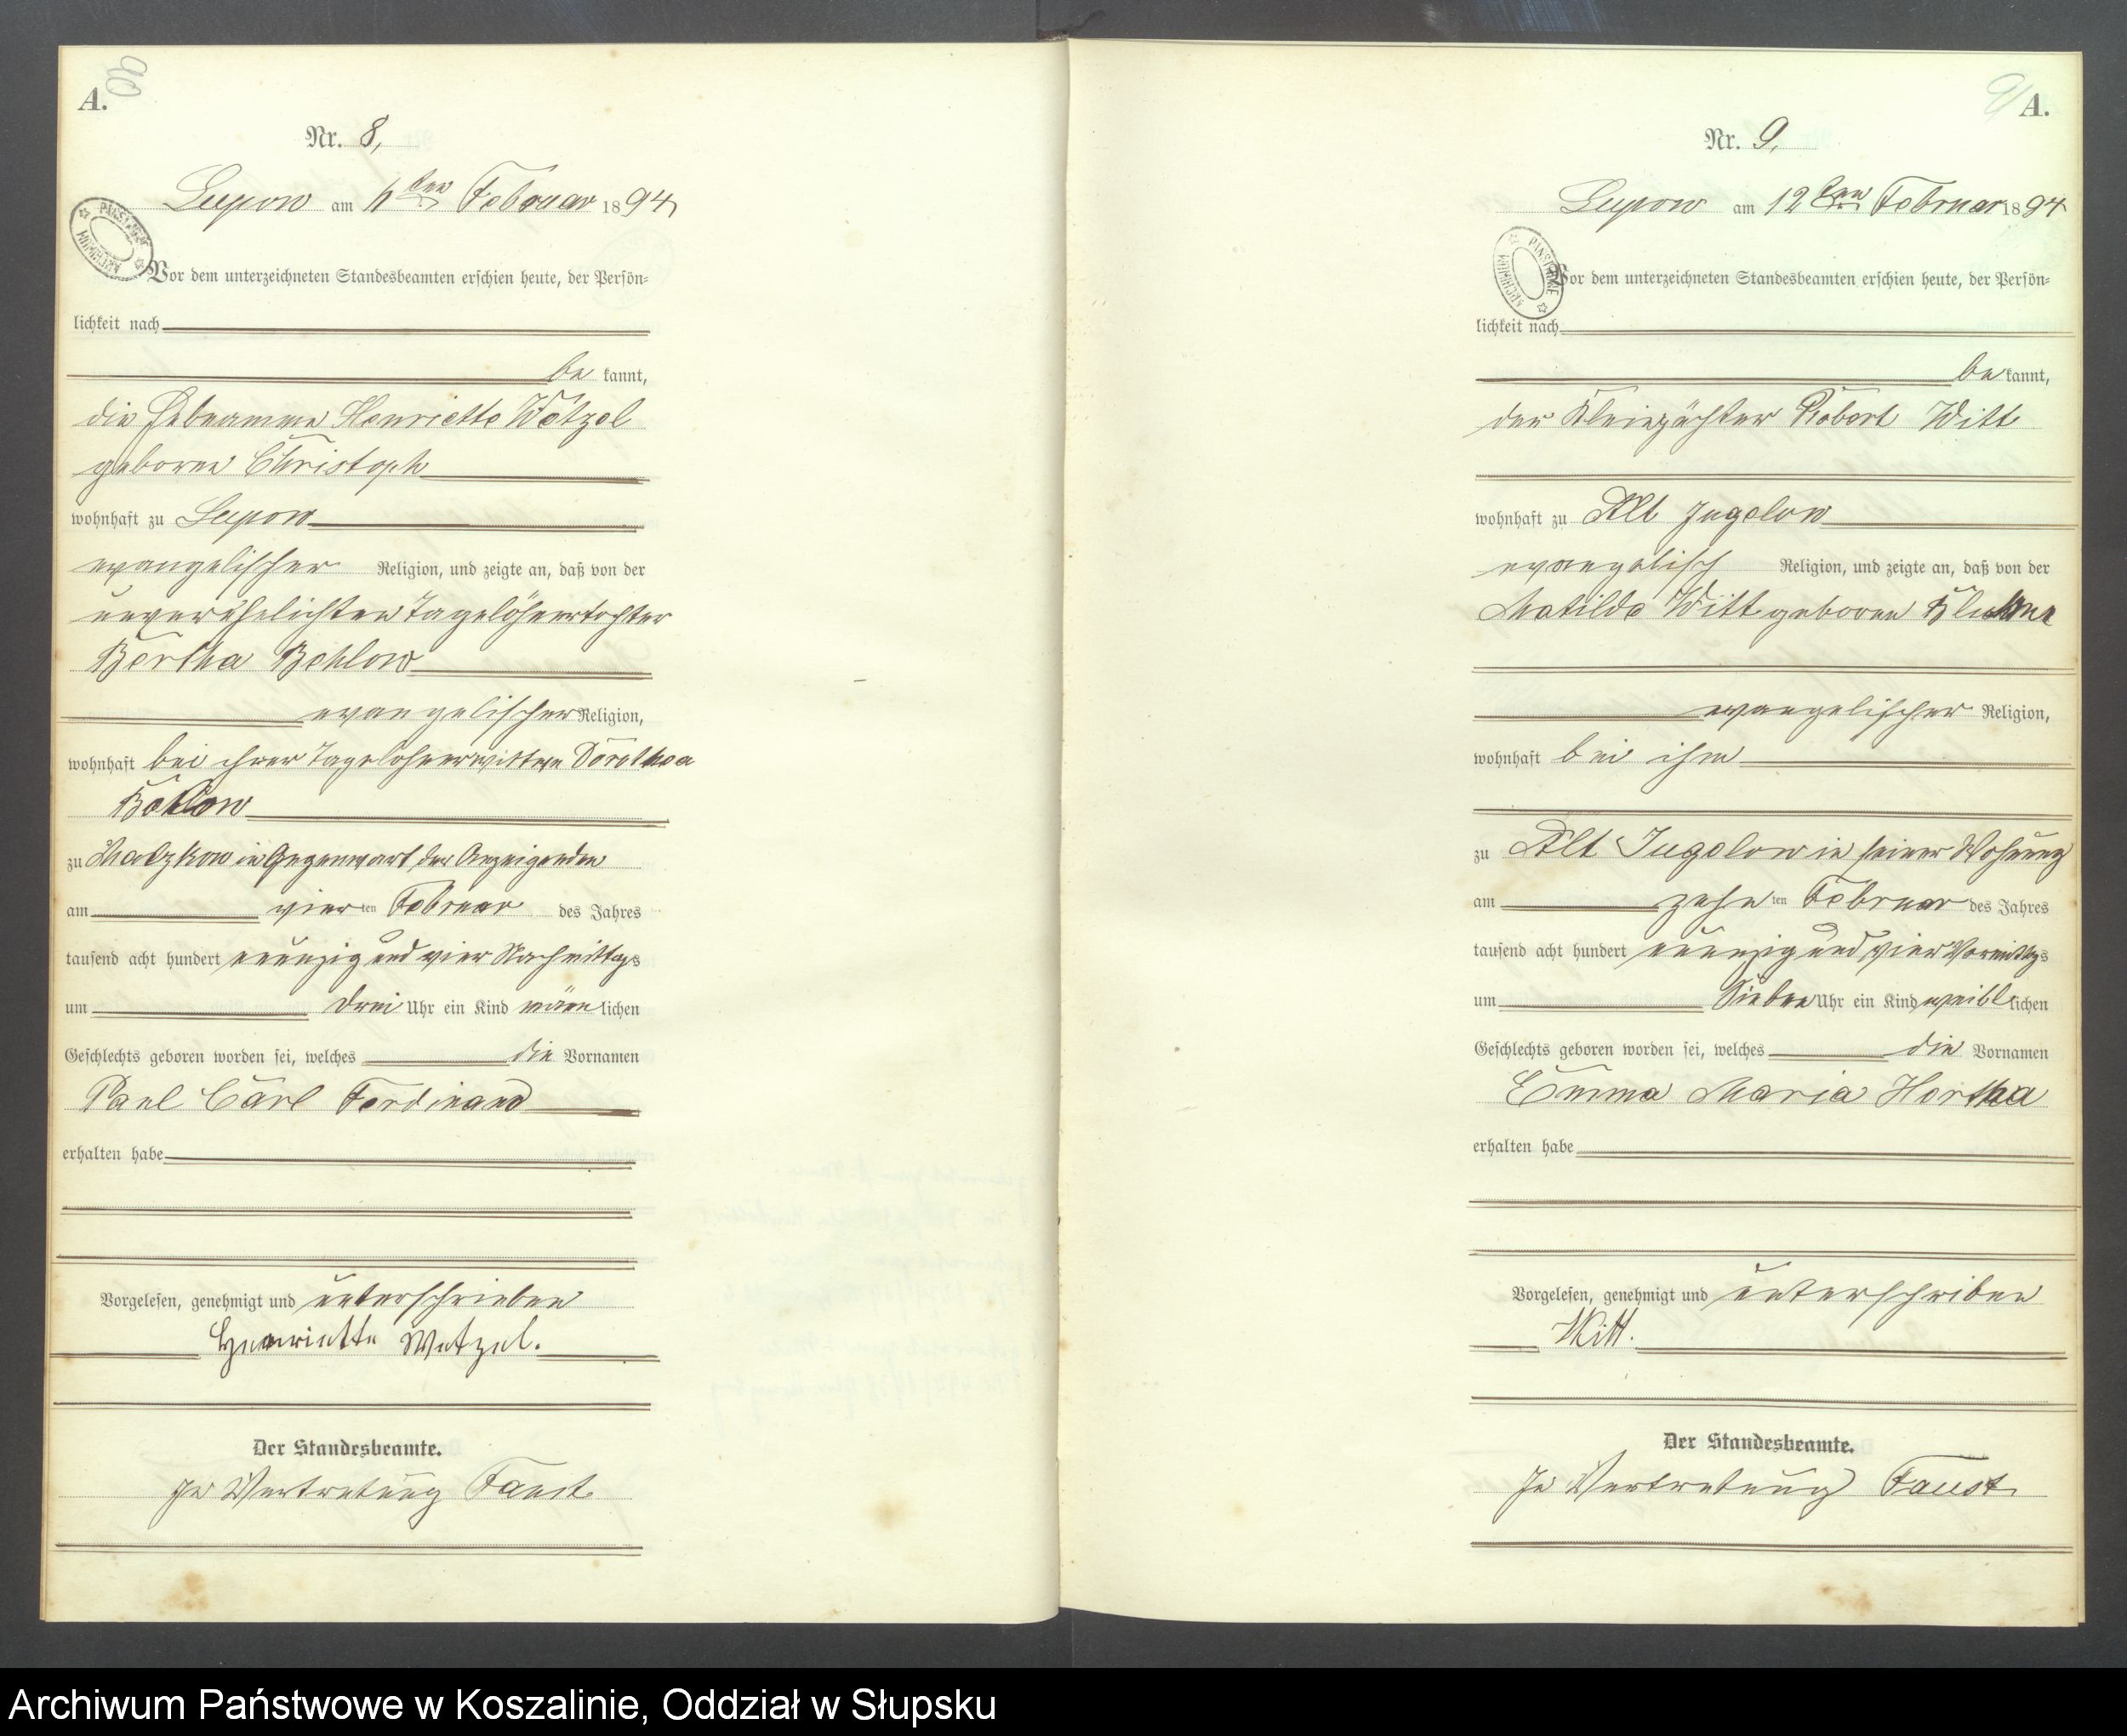 A.
90
Nr. 8,
Lupow am ten Februar 1894
PAŃSTWOWE ARCHIWUM
Vor dem unterzeichneten Standesbeamten erschien heute, der Persön-
lichkeit nach
be kannt,
die Hebeamme Henriette Wetzel
geborne Christoph
wohnhaft zu Lupow
evangelischer Religion, und zeigte an, daß von der
unverehelichten Tagelöhnertochter
Bertha
evangelischer Religion,
wohnhaft bei ihrer Tagelöhnerwittwe Dorothea
zu Malzkow in Gegenwart der Anzeigenden
am vier ten Februar des Jahres
tausend acht hundert neunzig und vier Nachmittags
um drei Uhr ein Kind männ lichen
Geschlechts geboren worden sei, welches die Vornamen
Paul Carl Ferdinand
erhalten habe
Vorgelesen, genehmigt und unterschrieben
Henriette Wetzel.
Der Standesbeamte.
In Vertretung Faust
91
A.
Nr. 9.
Lupow am 12 ten Februar 1894
PAŃSTWOWE ARCHIWUM
Vor dem unterzeichneten Standesbeamten erschien heute, der Persön-
lichkeit nach
be kannt,
der Kleinpächter Robert Witt
wohnhaft zu Alt Jugelow
evangelisch Religion, und zeigte an, daß von der
Matilde Witt geboren
evangelischer Religion,
wohnhaft bei ihm
zu Alt Jugelow in seiner Wohnung
am zehn ten Februar des Jahres
tausend acht hundert neunzig und vier Vormittags
um Sieben Uhr ein Kind weibl lichen
Geschlechts geboren worden sei, welches die Vornamen
Emma Maria Hertha
erhalten habe
Vorgelesen, genehmigt und unterschriben
Witt.
Der Standesbeamte.
In Vertretung Faust
Archiwum Państwowe w Koszalinie, Oddział w Słupsku